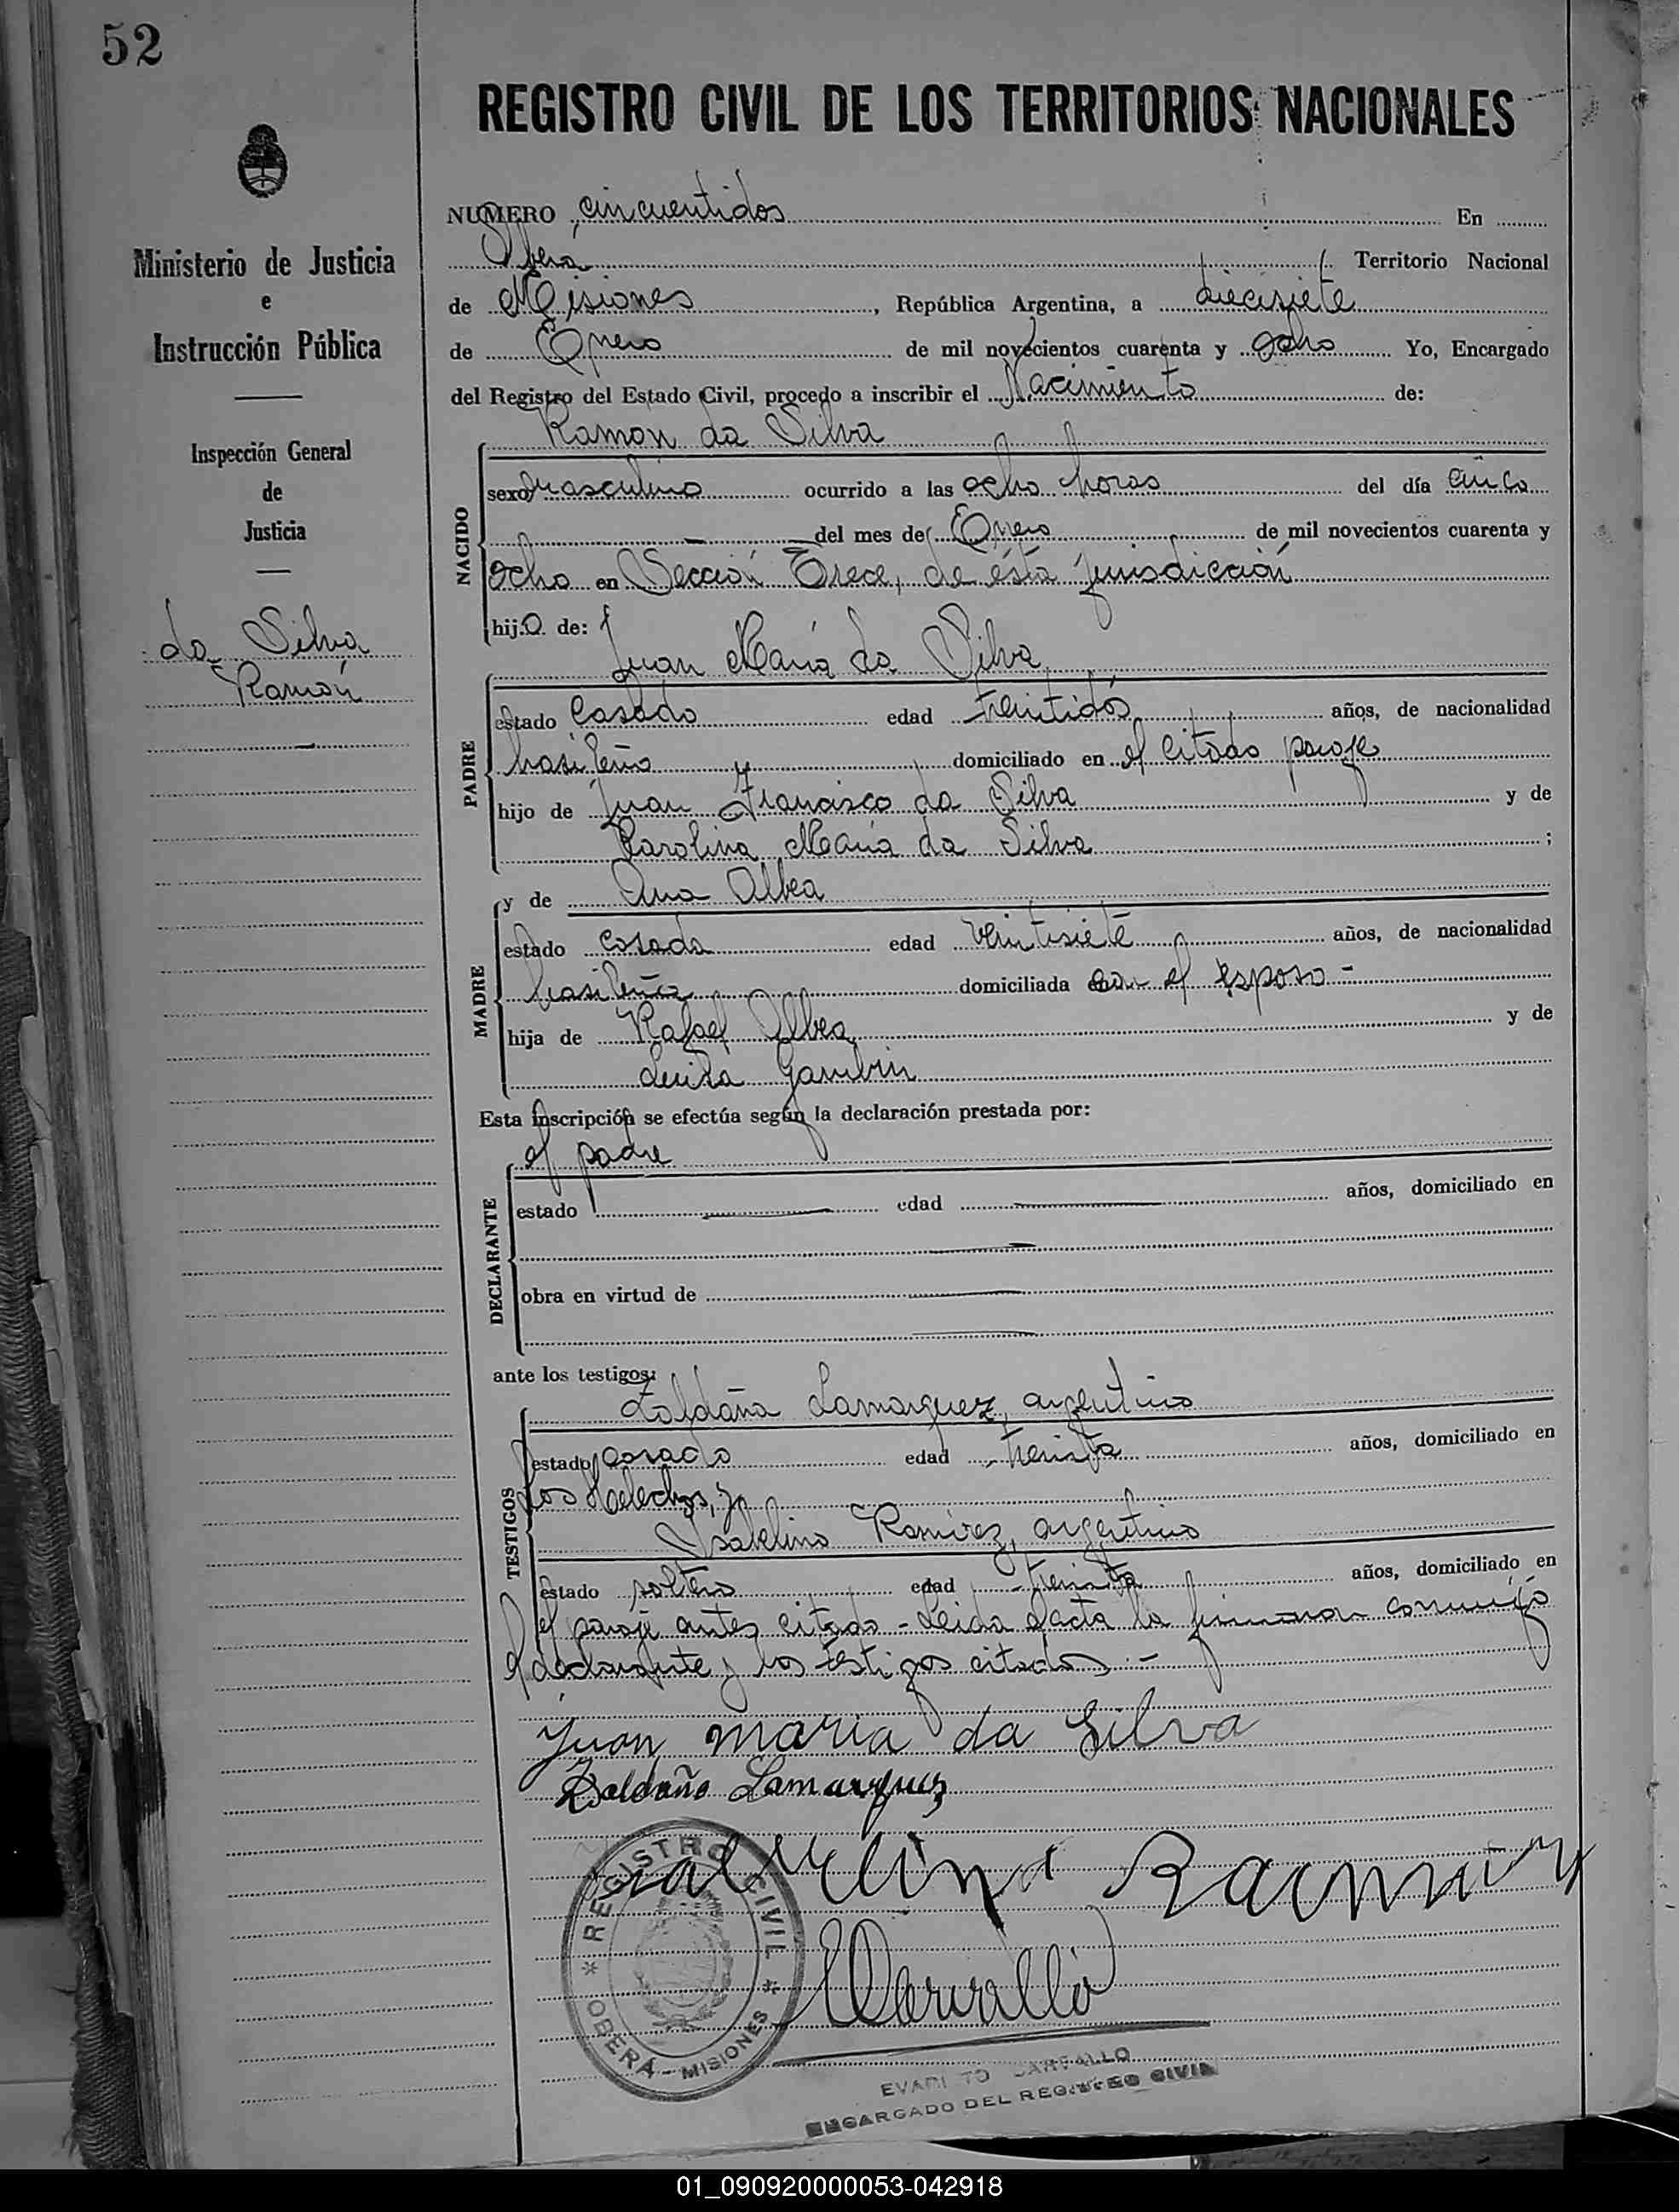 52
REGISTRO CIVIL DE LOS TERRITORIOS NACIONALES
Ministerio de Justicia
e
Instrucción Pública
Inspección General
de
Justicia
da Silva
Ramón
NUMERO cincuentidos En
Oberá Territorio Nacional
de Misiones, República Argentina, a diecisiete
de Enero de mil novecientos cuarenta y ocho Yo, Encargado
del Registro del Estado Civil, procedo a inscribir el Nacimiento de:
Ramon da Silva
NACIDO
sexo masculino ocurrido a las ocho horas del día cinco
del mes de Enero de mil novecientos cuarenta y
ocho en Sección Trece, de ésta jurisdicción
hijo de:
Juan María da Silva
PADRE
estado Casado edad treintidós años, de nacionalidad
brasileño domiciliado en el citado paraje
hijo de Juan Francisco da Silva y de
Carolina María da Silva ;
y de Ana Albea
MADRE
estado casada edad veintisiete años, de nacionalidad
brasileña domiciliada con el esposo -
hija de Rafael Albea y de
Luisa Gambin
Esta inscripción se efectúa según la declaración prestada por:
el padre
DECLARANTE
estado edad años, domiciliado en
obra en virtud de
ante los testigos:
Zaldaña Lamarquez, argentino
TESTIGOS
estado casado edad treinta años, domiciliado en
Los Helechos, y
Isabelino Ramirez, argentino
estado soltero edad treinta años, domiciliado en
el paraje antes citado - Leida el acta la firmaron conmigo
el declarante y los testigos citados. -
Juan maria da Silva
Zaldaña Lamarquez
REGISTRO CIVIL
OBERÁ - MISIONES
ENCARGADO DEL REGISTRO CIVIL
01_090920000053-042918